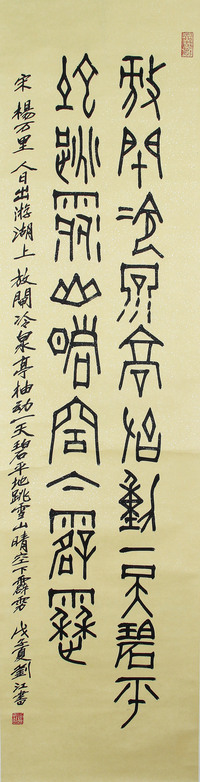 放閘冷泉亭抽動一天碧平
地跳雪山晴空下霹靂
宋楊万里人日出游湖上放閘冷泉亭抽动一天碧平地跳雪山晴空下霹雳戊寅劉江書